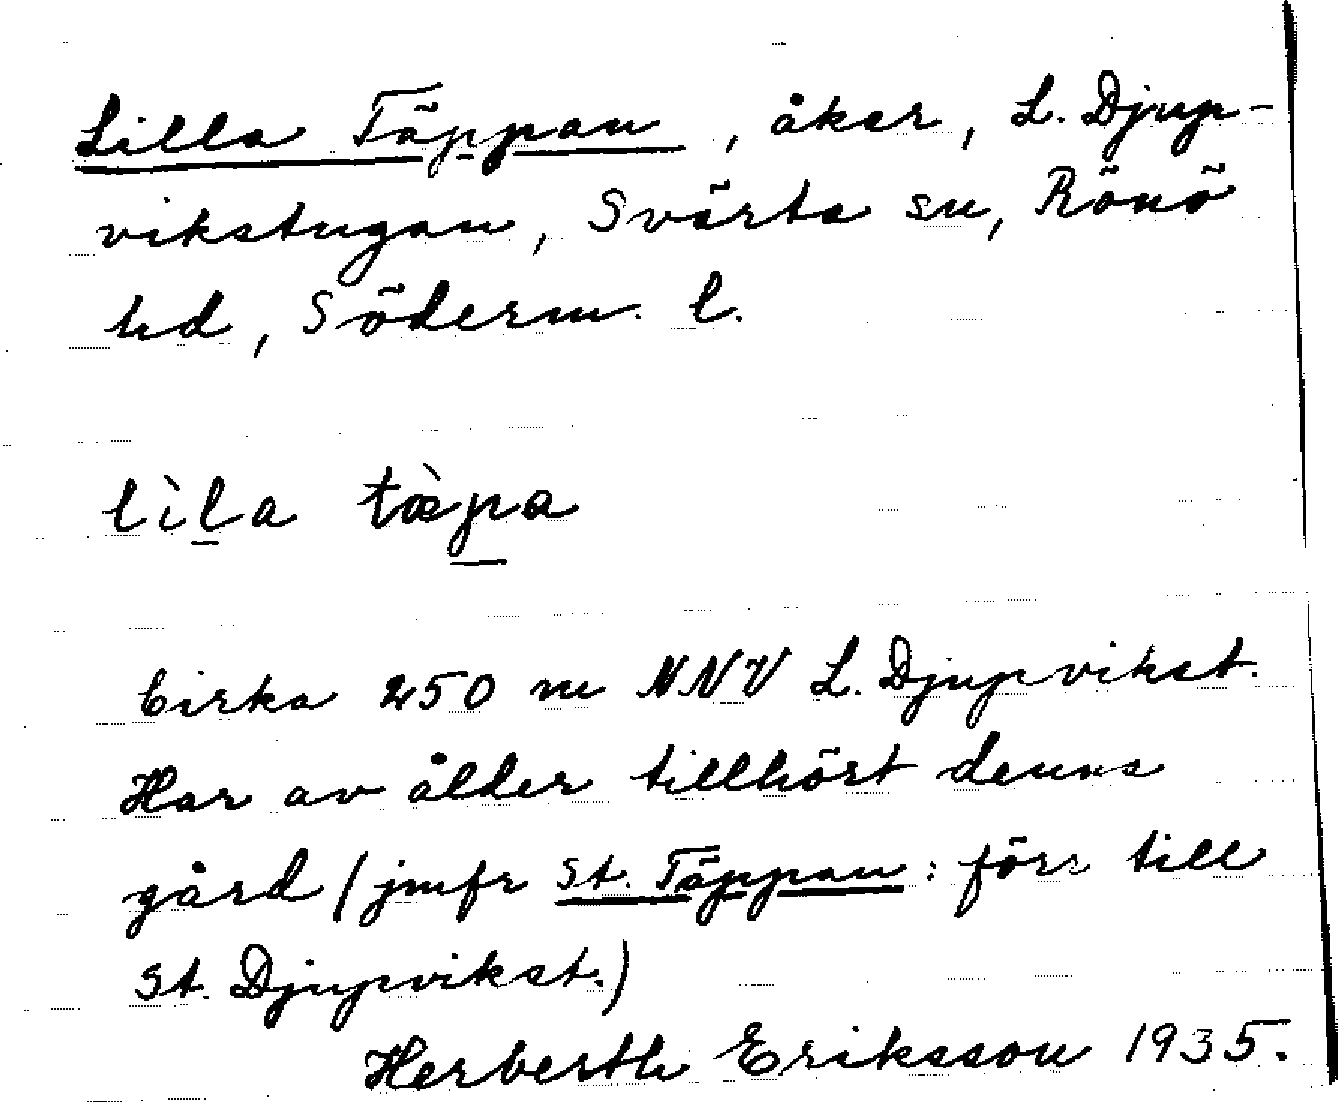 Lilla Täppan, åker, L. Djup-
vikstugan, Svärta sn, Rönö
hd, Söderm. l.
lìla tæ̀pa
Cirka 250 m NNV L. Djupvikst.
Har av ålder tillhört denna
gård (jmfr St. Täppan: förr till
St. Djupvikst.)
Herberth Eriksson 1935.